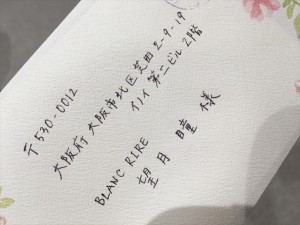 〒530-0012
大阪府大阪市北区芝田2-9-19
イノイ第二ビル2階
BLANC RIRE
望月 瞳 様